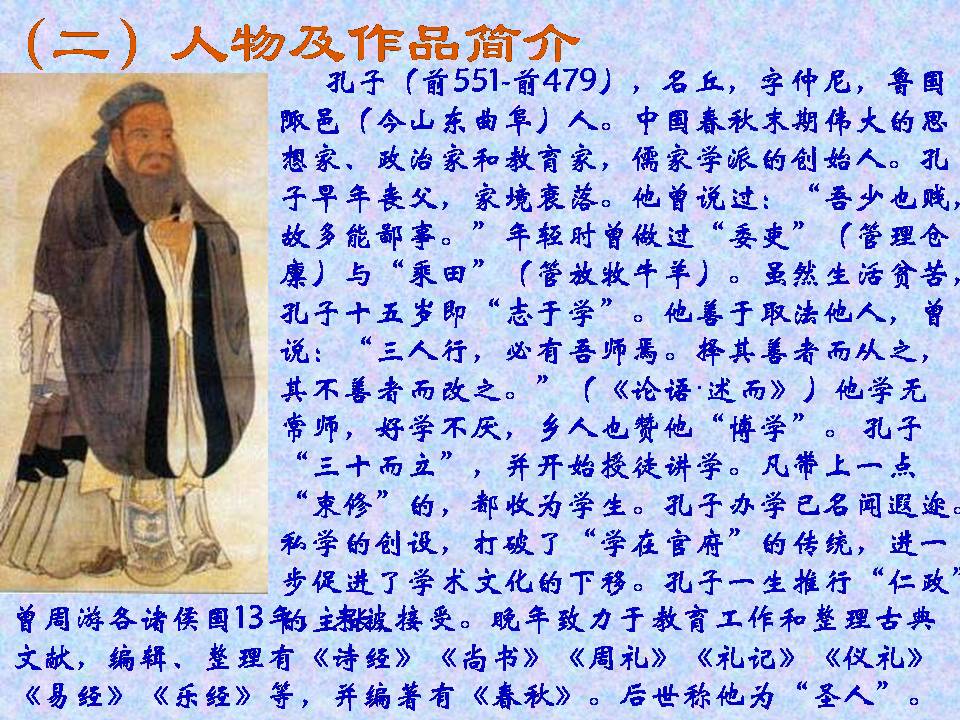 （二）人物及作品简介
孔子（前551-前479），名丘，字仲尼，鲁国
陬邑（今山东曲阜）人。中国春秋末期伟大的思
想家、政治家和教育家，儒家学派的创始人。孔
子早年丧父，家境衰落。他曾说过：“吾少也贱，
故多能鄙事。”年轻时曾做过“委吏”（管理仓
廪）与“乘田”（管放牧牛羊）。虽然生活贫苦，
孔子十五岁即“志于学”。他善于取法他人，曾
说：“三人行，必有吾师焉。择其善者而从之，
其不善者而改之。”（《论语·述而》）他学无
常师，好学不厌，乡人也赞他“博学”。孔子
“三十而立”，并开始授徒讲学。凡带上一点
“束修”的，都收为学生。孔子办学已名闻遐迩。
私学的创设，打破了“学在官府”的传统，进一
步促进了学术文化的下移。孔子一生推行“仁政”
曾周游各诸侯国13年，的主张被接受。晚年致力于教育工作和整理古典
文献，编辑、整理有《诗经》《尚书》《周礼》《礼记》《仪礼》
《易经》《乐经》等，并编著有《春秋》。后世称他为“圣人”。